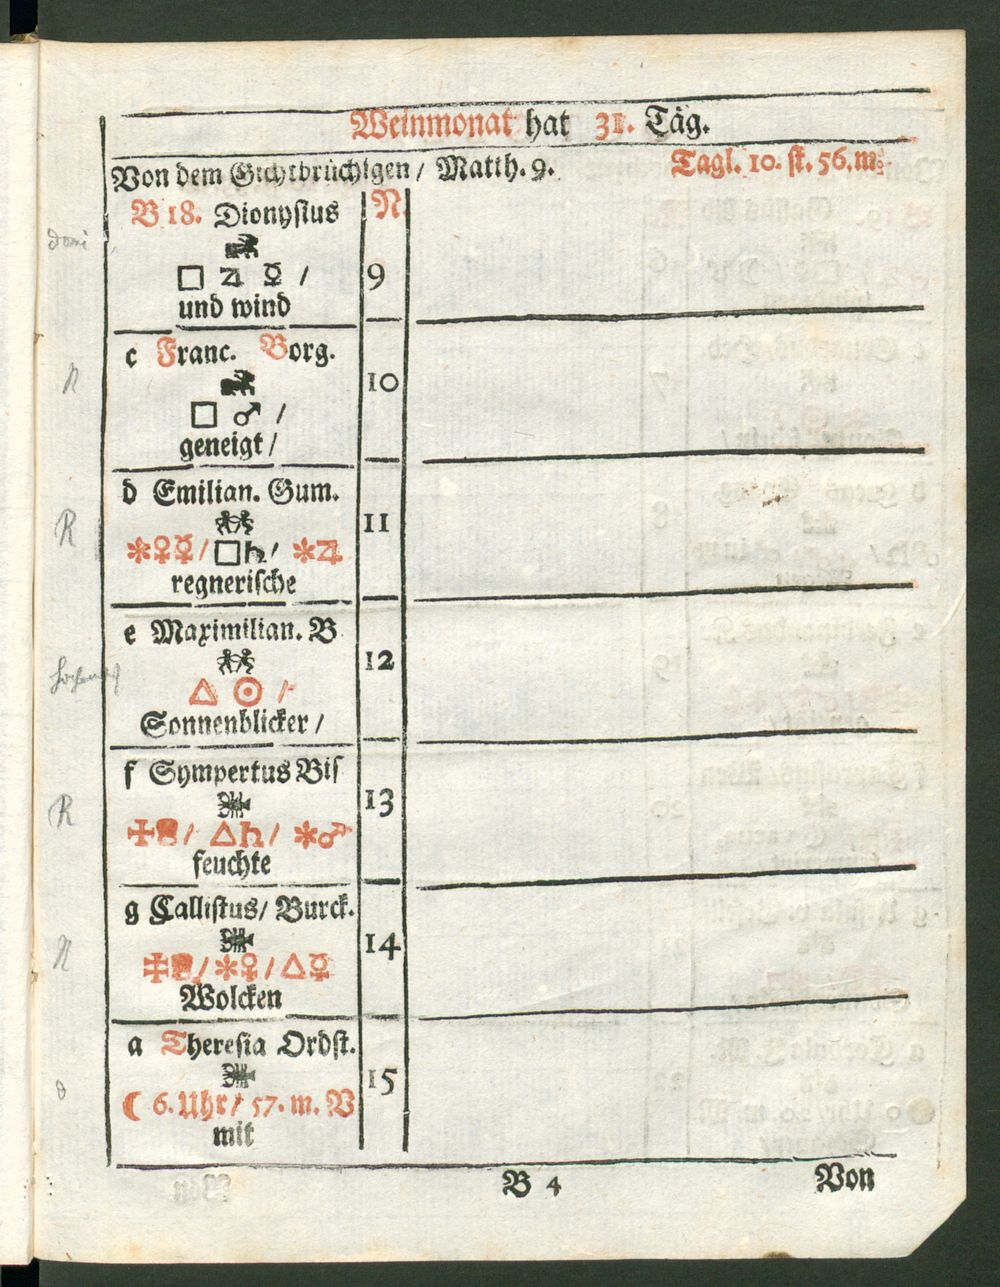 Weinmonat hat 31. Täg.
Von dem Gichtbrüchigen / Matth. 9. Tagl. 10. st. 56. m.
B 18. Dionysius N.
□ ♃ ☿ / 9
und wind
c Franc. Borg.
10
□ ♂ /
geneigt /
d Emilian. Gum.
11
✻♀☿ / □♄ / ✻♃
regnerische
e Maximilian. B
12
△ ☉ /
Sonnenblicker /
f Sympertus Bis
13
/ △♄ / ✻♂
feuchte
g Callistus / Burck.
14
/ ✻♀ / △☿
Wolcken
a Theresia Ordst.
15
☾ 6. Uhr / 57. m. V
mit
B 4 Von
R
R